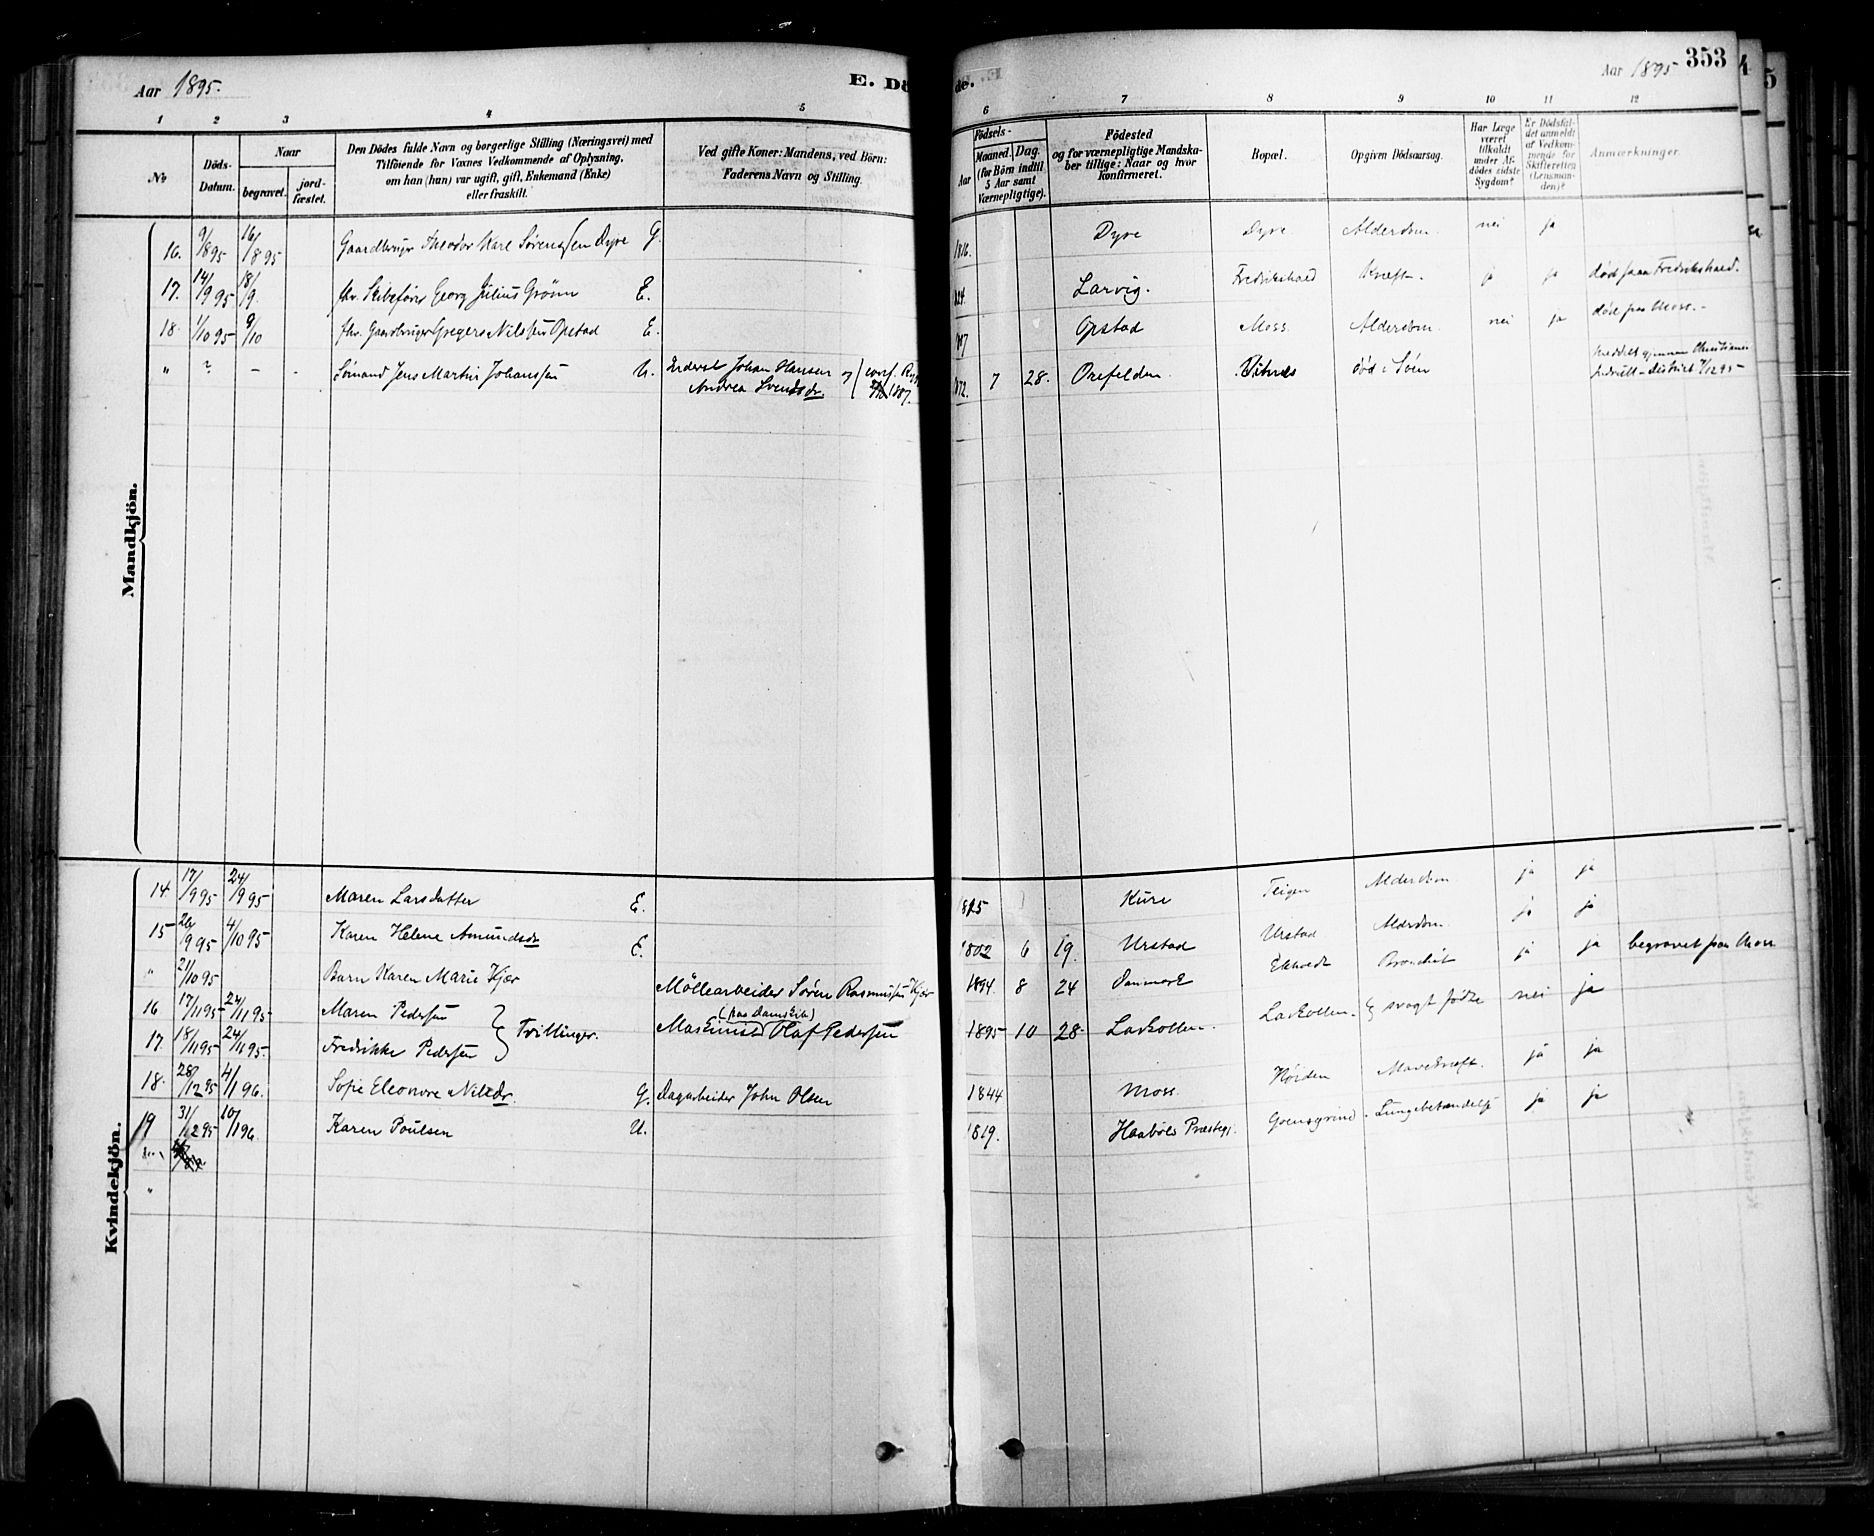 Aar 1895.
E. Dö
de.
Aar 1895
353
1 2 3 4 5 6 7 8 9 10 11 12
No
Döds-Datum.
Naar
begravet.
jord-fæstet.
Den Dödes fulde Navn og borgerlige Stilling (Næringsvei) med
Tilföiende for Voxnes Vedkommende af Oplysning,
om han (hun) var ugift, gift, Enkemand (Enke)
eller fraskilt.
Ved gifte Koner: Mandens, ved Börn:
Faderens Navn og Stilling.
Födsels-
Aar
Maaned.
Dag.
(for Börn indtil
5 Aar samt
Værnepligtige).
Födested
og for værnepligtige Mandska-
ber tillige: Naar og hvor
konfirmeret.
Bopæl.
Opgiven Dödsaarsag.
Har Læge
været
tilkaldt
under Af-
dödes sidste
Sygdom?
Er Dödsfal-
det anmeldt
af Vedkom-
mende for
Skifteretten
(Lensman-
den)?
Anmærkninger.
Mandkjön.
16. 9/8 95 16/8 95 Gaardbruger Theodor Karl Sørenssen Dyre G. 1816. Dyre Dyre Alderdom. nei ja
17. 14/9 95 18/9. fhv. Skibsfører Georg Julius Grønn E. 824. Larvig. Fredrikshald Kræft. ja ja død paa Fredrikshald.
18. 1/10 95 9/10 fhv. Gaardbruger Gregers Nilssen Opstad E. Opstad Moss. Alderdom. nei ja død paa Moss.
" ? - - Sømand Jens Martin Johanssen U. Inderst Johan Hansen
Andrea Svendsdr. conf. 1887. 1872. 7 28. Orefelden død i Søen
12 95
Kvindekjön.
14 17/9 95 24/9 95 Maren Larsdatter E. 1815 Kure Teigen Alderdom ja ja
15 26/9 95 4/10 95 Karen Helene Amundsdr E. 1802 6 19. Urstad Urstad Alderdom ja ja
" 21/10 95 Barn Karen Marie Kjær Möllearbeider Søren Rasmussen Kjær 1894. 8 24 Danmark Ekholdt Bronchit ja ja begravet paa Moss
16 17/11 95 24/11 95 Maren Pedersen } Tvillinger. Maskinist Olaf Pedersen
(paa Damskib) 1895 10 28 Larkollen. Larkollen. svagt fødte nei ja
17. 18/11 95 24/11 95. Fredrikke Pedersen
18. 28/12 95 4/1 96. Sofie Eleonore Nilsdr. G. Dagarbeider John Olsen 1844 Moss. Høiden Mavekræft. ja ja
19 31/12 95 10/1 96 Karen Poulsen U. 1819. Haabøls Præstegj. Goensgrind Lungebetændelse ja ja
"